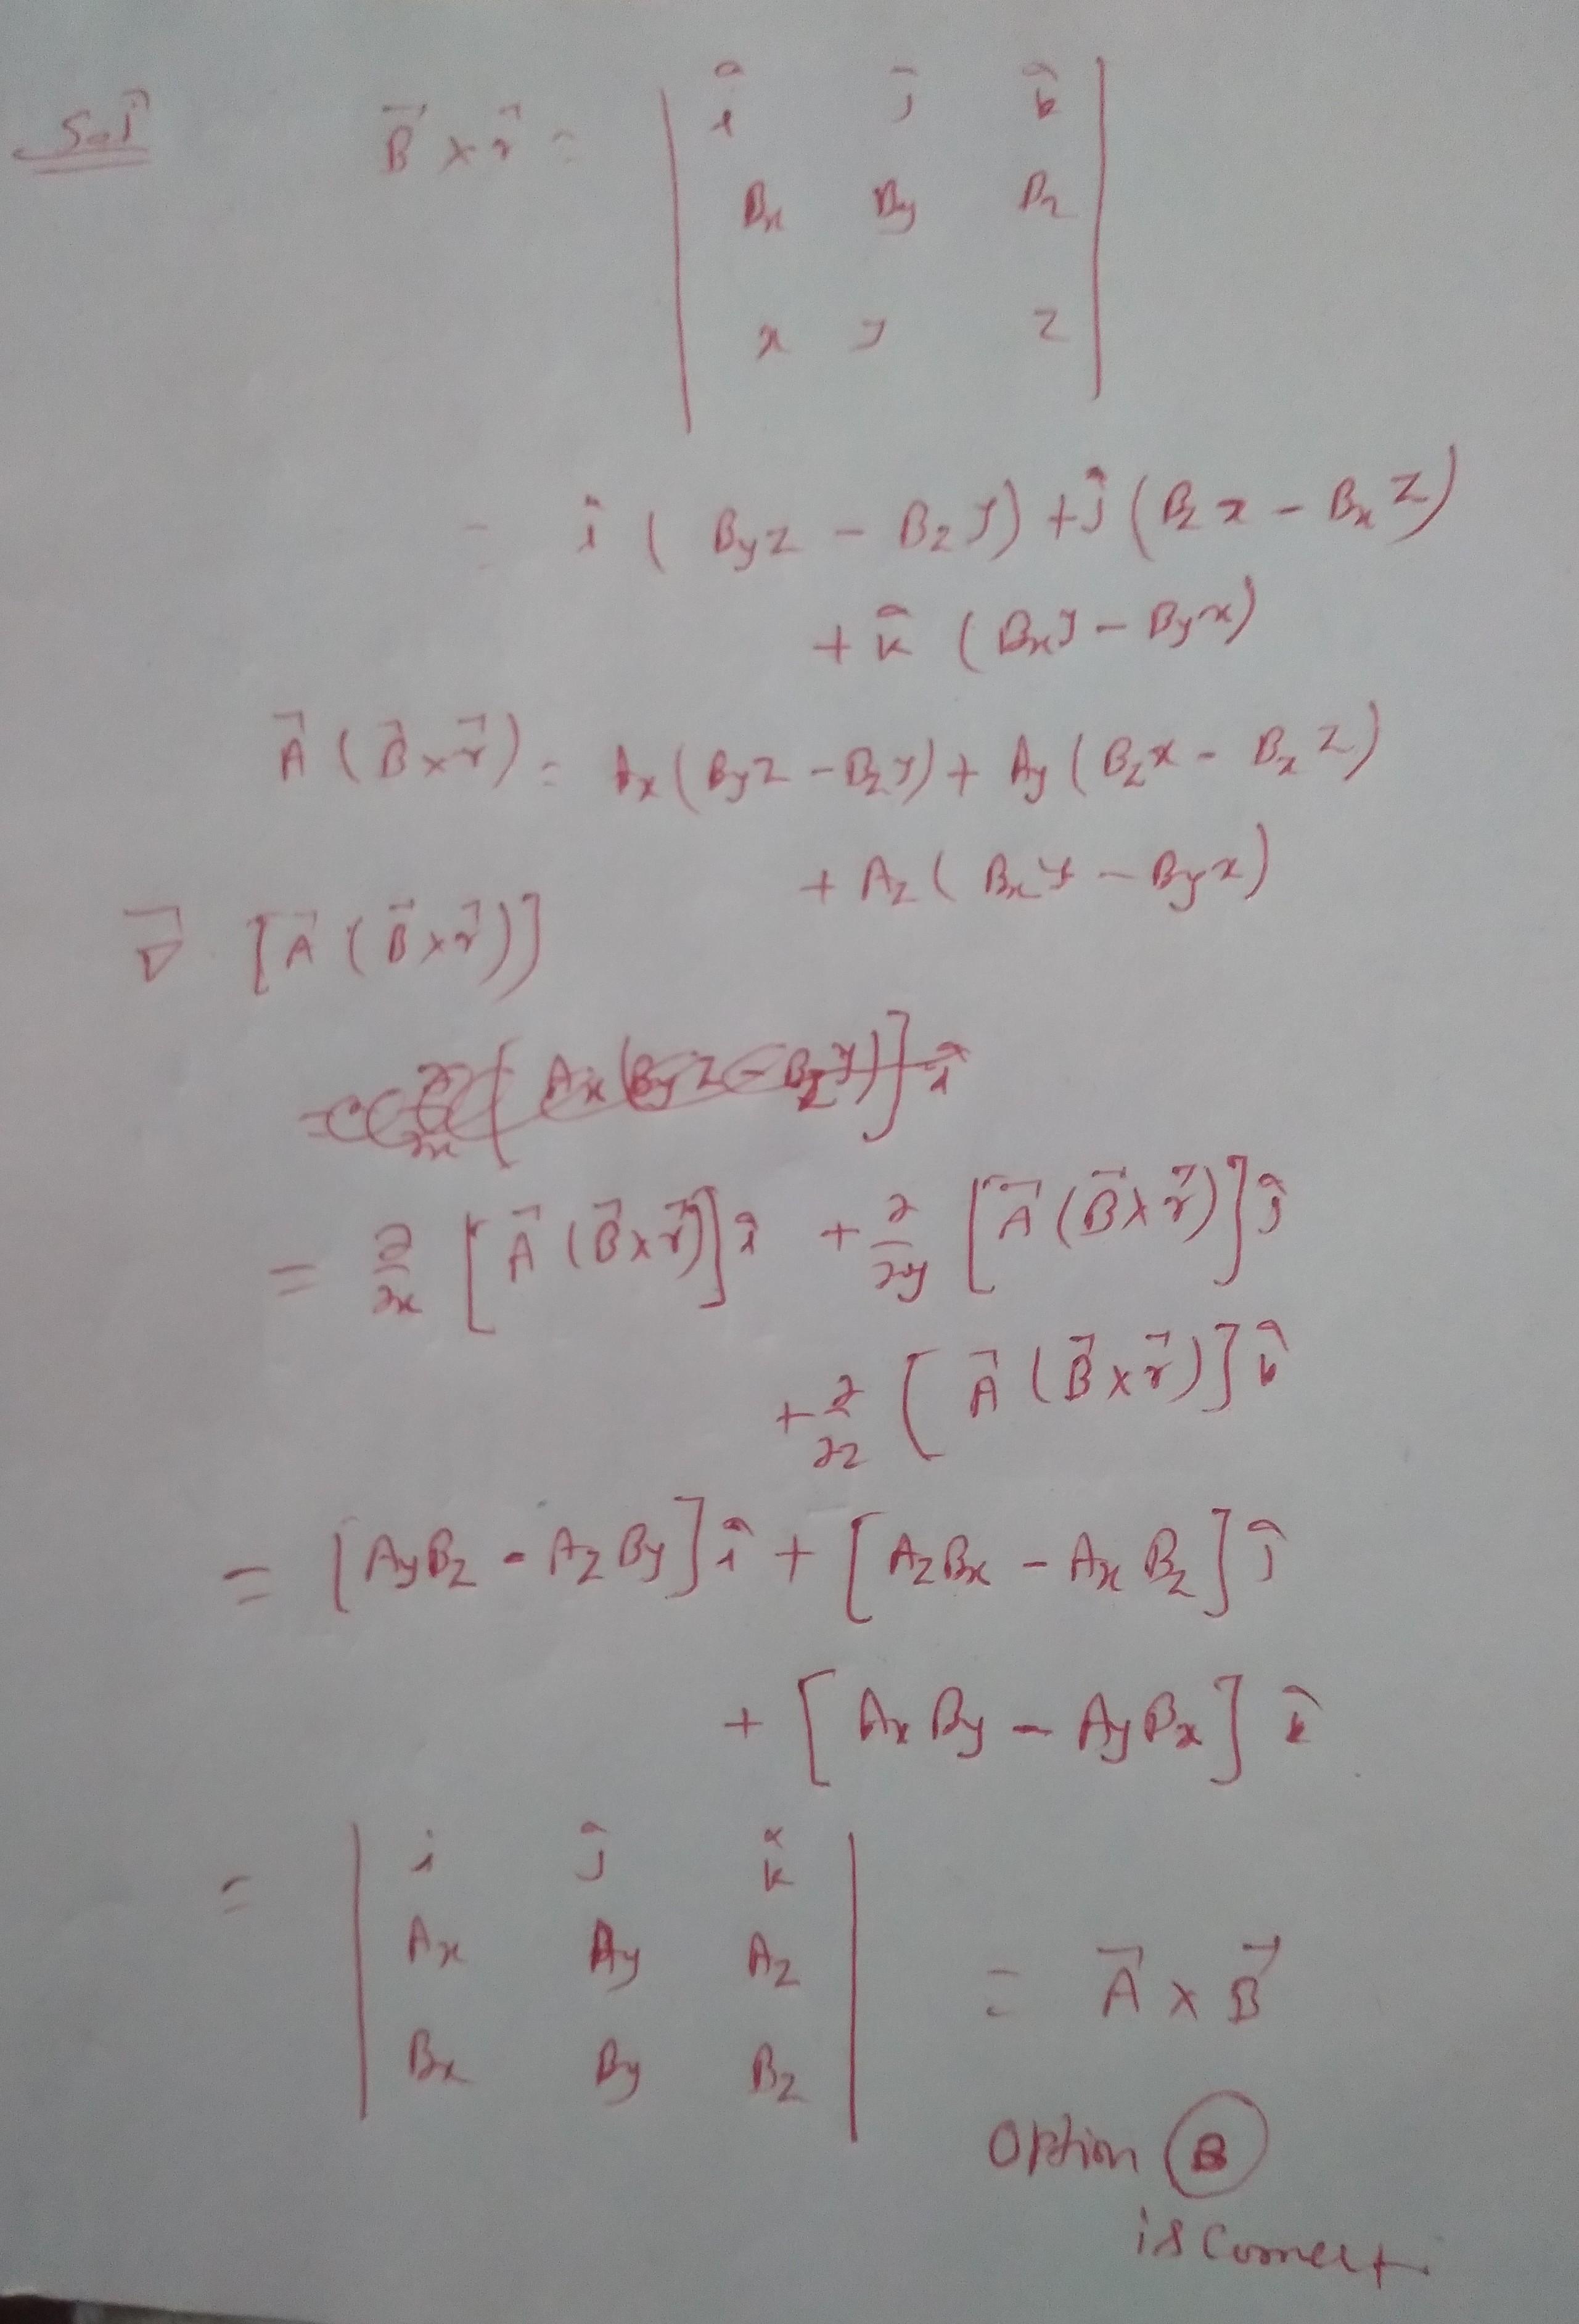 Sol
B⃗ × r⃗ = | î ĵ k̂ |
| Bx By Bz |
| x y z |
= î ( By z − Bz y) + ĵ (Bz x − Bx z)
+ k̂ (Bx y − By x)
A⃗ (B⃗ × r⃗) = Ax (By z − Bz y) + Ay (Bz x − Bx z)
+ Az ( Bx y − By x)
∇⃗ [A⃗ (B⃗ × r⃗)]
= ∂/∂x [A⃗ (B⃗ × r⃗)] î + ∂/∂y [A⃗ (B⃗ × r⃗)] ĵ
+ ∂/∂z [A⃗ (B⃗ × r⃗)] k̂
= [Ay Bz − Az By] î + [Az Bx − Ax Bz] ĵ
+ [Ax By − Ay Bx] k̂
= | i ĵ k̂ |
| Ax Ay Az | = A⃗ × B⃗
| Bx By Bz |
Option B
is correct.